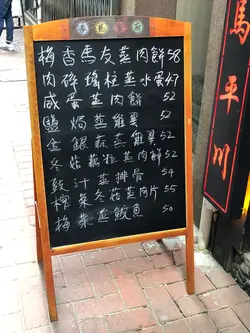 梅香馬友蒸肉餅58
肉碎瑤柱蒸水蛋47
咸蛋蒸肉餅 52
鹽焗蒸雞翼 52
金銀蒜蒸雞翼 52
冬菇藕粒蒸肉餅52
豉汁蒸排骨 54
粿菜冬菇蒸肉片 55
梅菜蒸鯇魚 50
馬平川